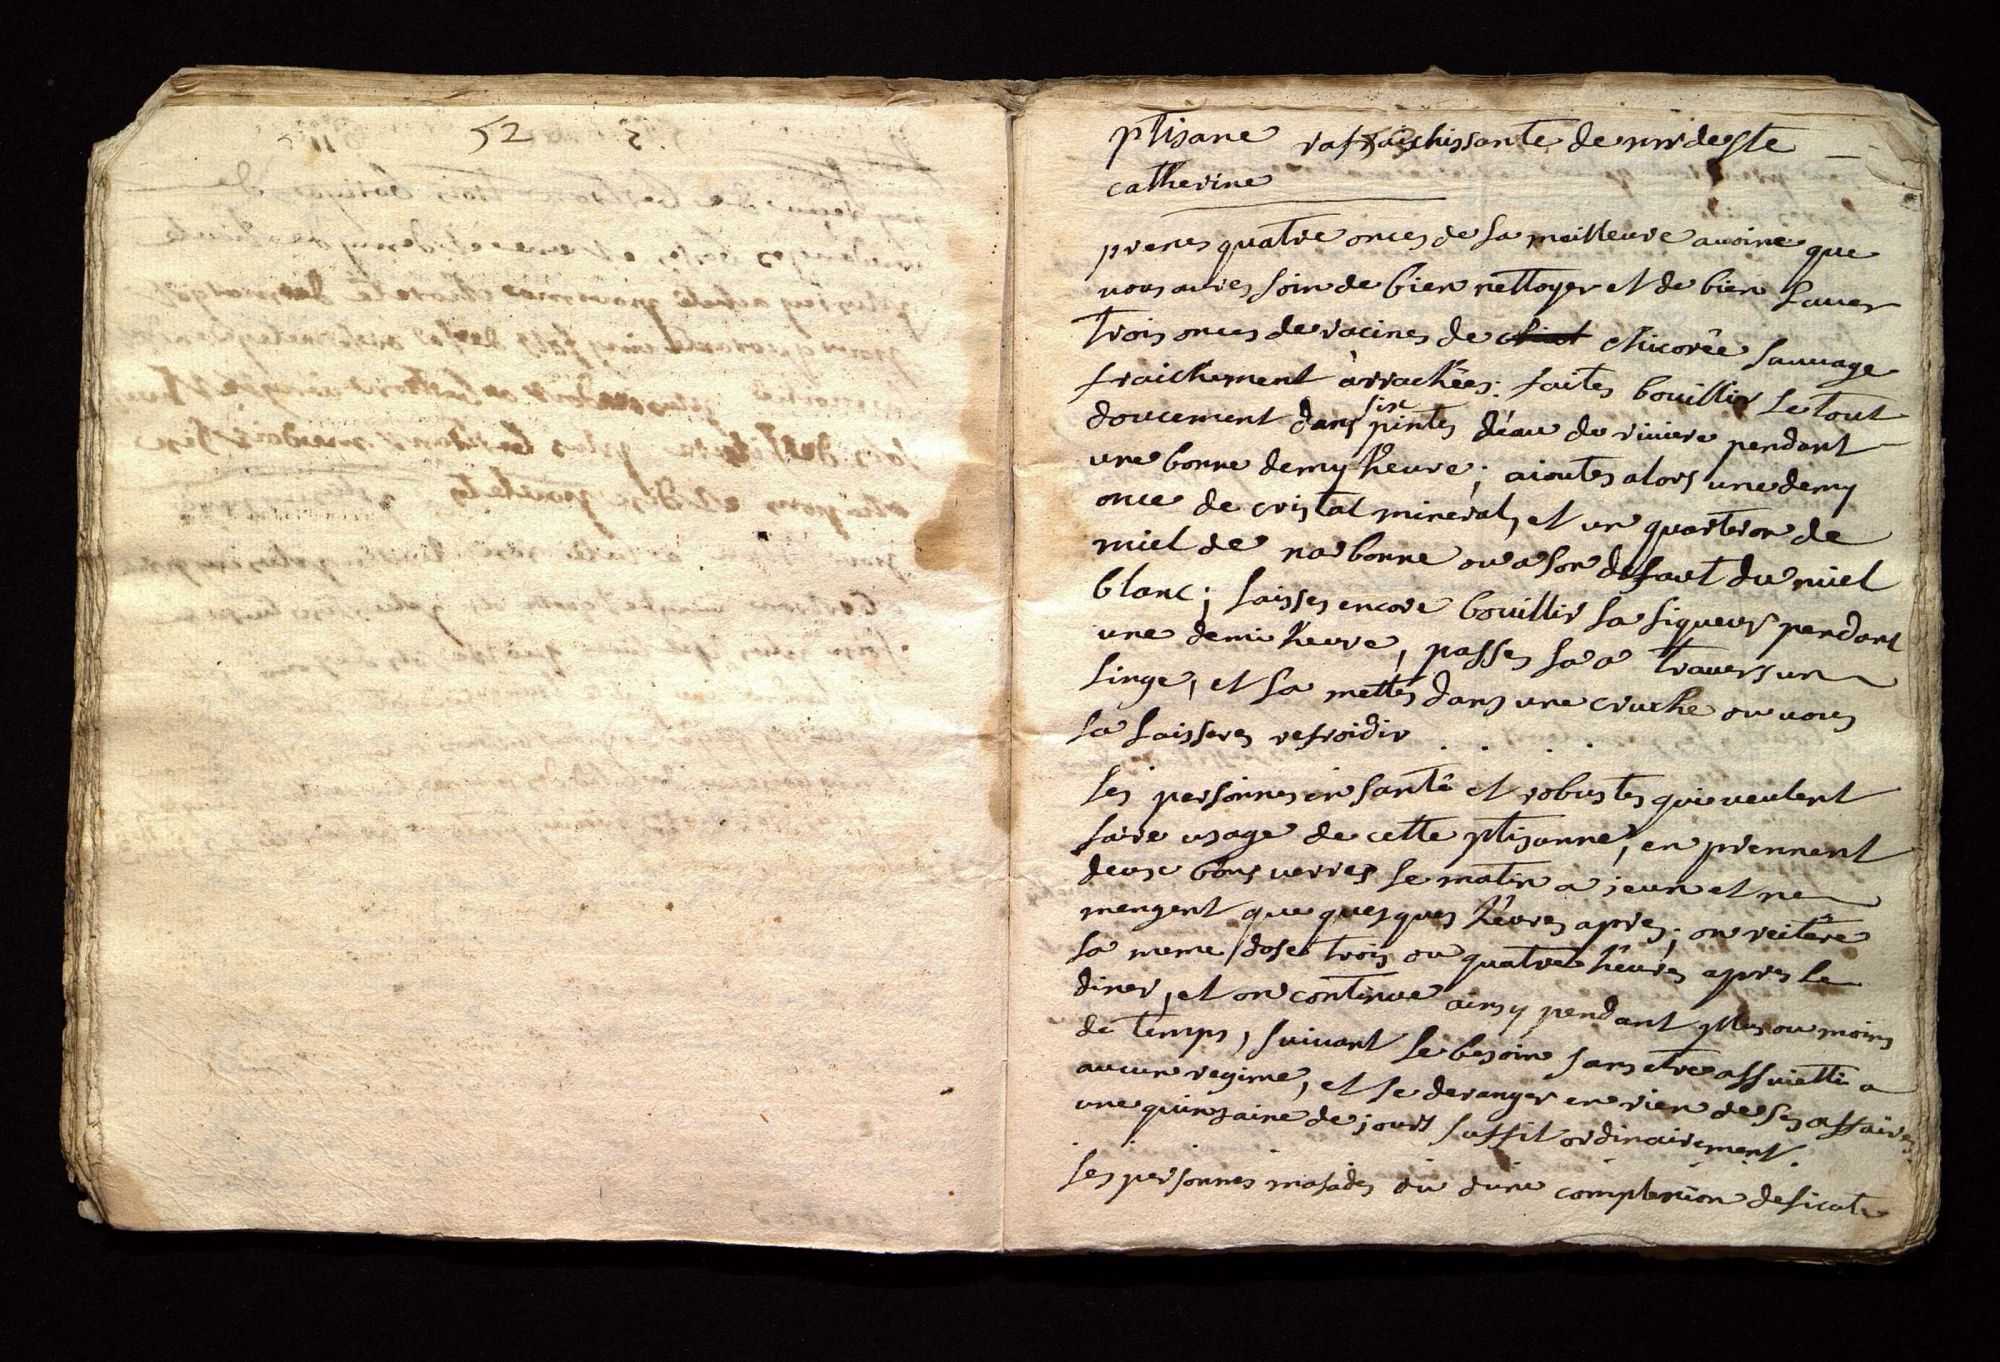 52
ptisane raffraichissante de mr de ste
catherine
prenes quatre onces de la meilleure auoine que
uous aures soin de bien nettoyer et de bien lauer
trois onces de racines de chicorêe sauuage
fraichement àrrachêes. faites bouillir le tout
doucement dans six pintes d'eau de riuiere pendant
une bonne demy heure; aioutes alors une demy
once de cristal mineral, et un quarteron de
miel de narbonne ou a son defaut du miel
blanc; laisses encore bouillir la liqueur pendant
une demi heure, passes la a trauers un
linge, et la mettes dans une cruche ou uous
la laisseres refroidir
les personnes en santé et robustes qui ueulent
faire usage de cette ptisanne, en prennent
deux bons uerres le matin a jeun et ne
mengent que quesques heures apres; on reitere
la meme dose trois ou quatre heures apres le
diner, et on continue ainsy pendant plus ou moins
de temps, suiuant le besoin sans etre assuietti a
aucun regime, et se deranger en rien de ses affaires.
une quinzaine de jours suffit ordinairement.
les personnes malades ou d'une complexion delicate